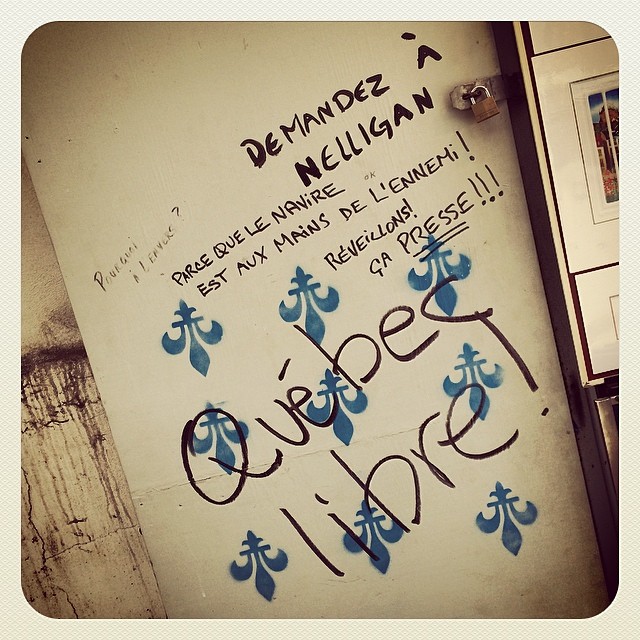 DEMANDEZ À
NELLIGAN
POURQUOI
À L'ENVERS?
OK
PARCE QUE LE NAVIRE
EST AUX MAINS DE L'ENNEMI!
RÉVEILLONS!
ÇA PRESSE!!!
Québec
libre!